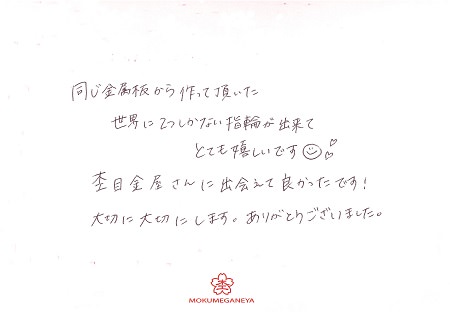 同じ金属板から作って頂いた
世界に2つしかない指輪が出来て
とても嬉しいです
杢目金屋さんに出会えて良かったです!
大切に大切にします。ありがとうございました。
杢
MOKUMEGANEYA